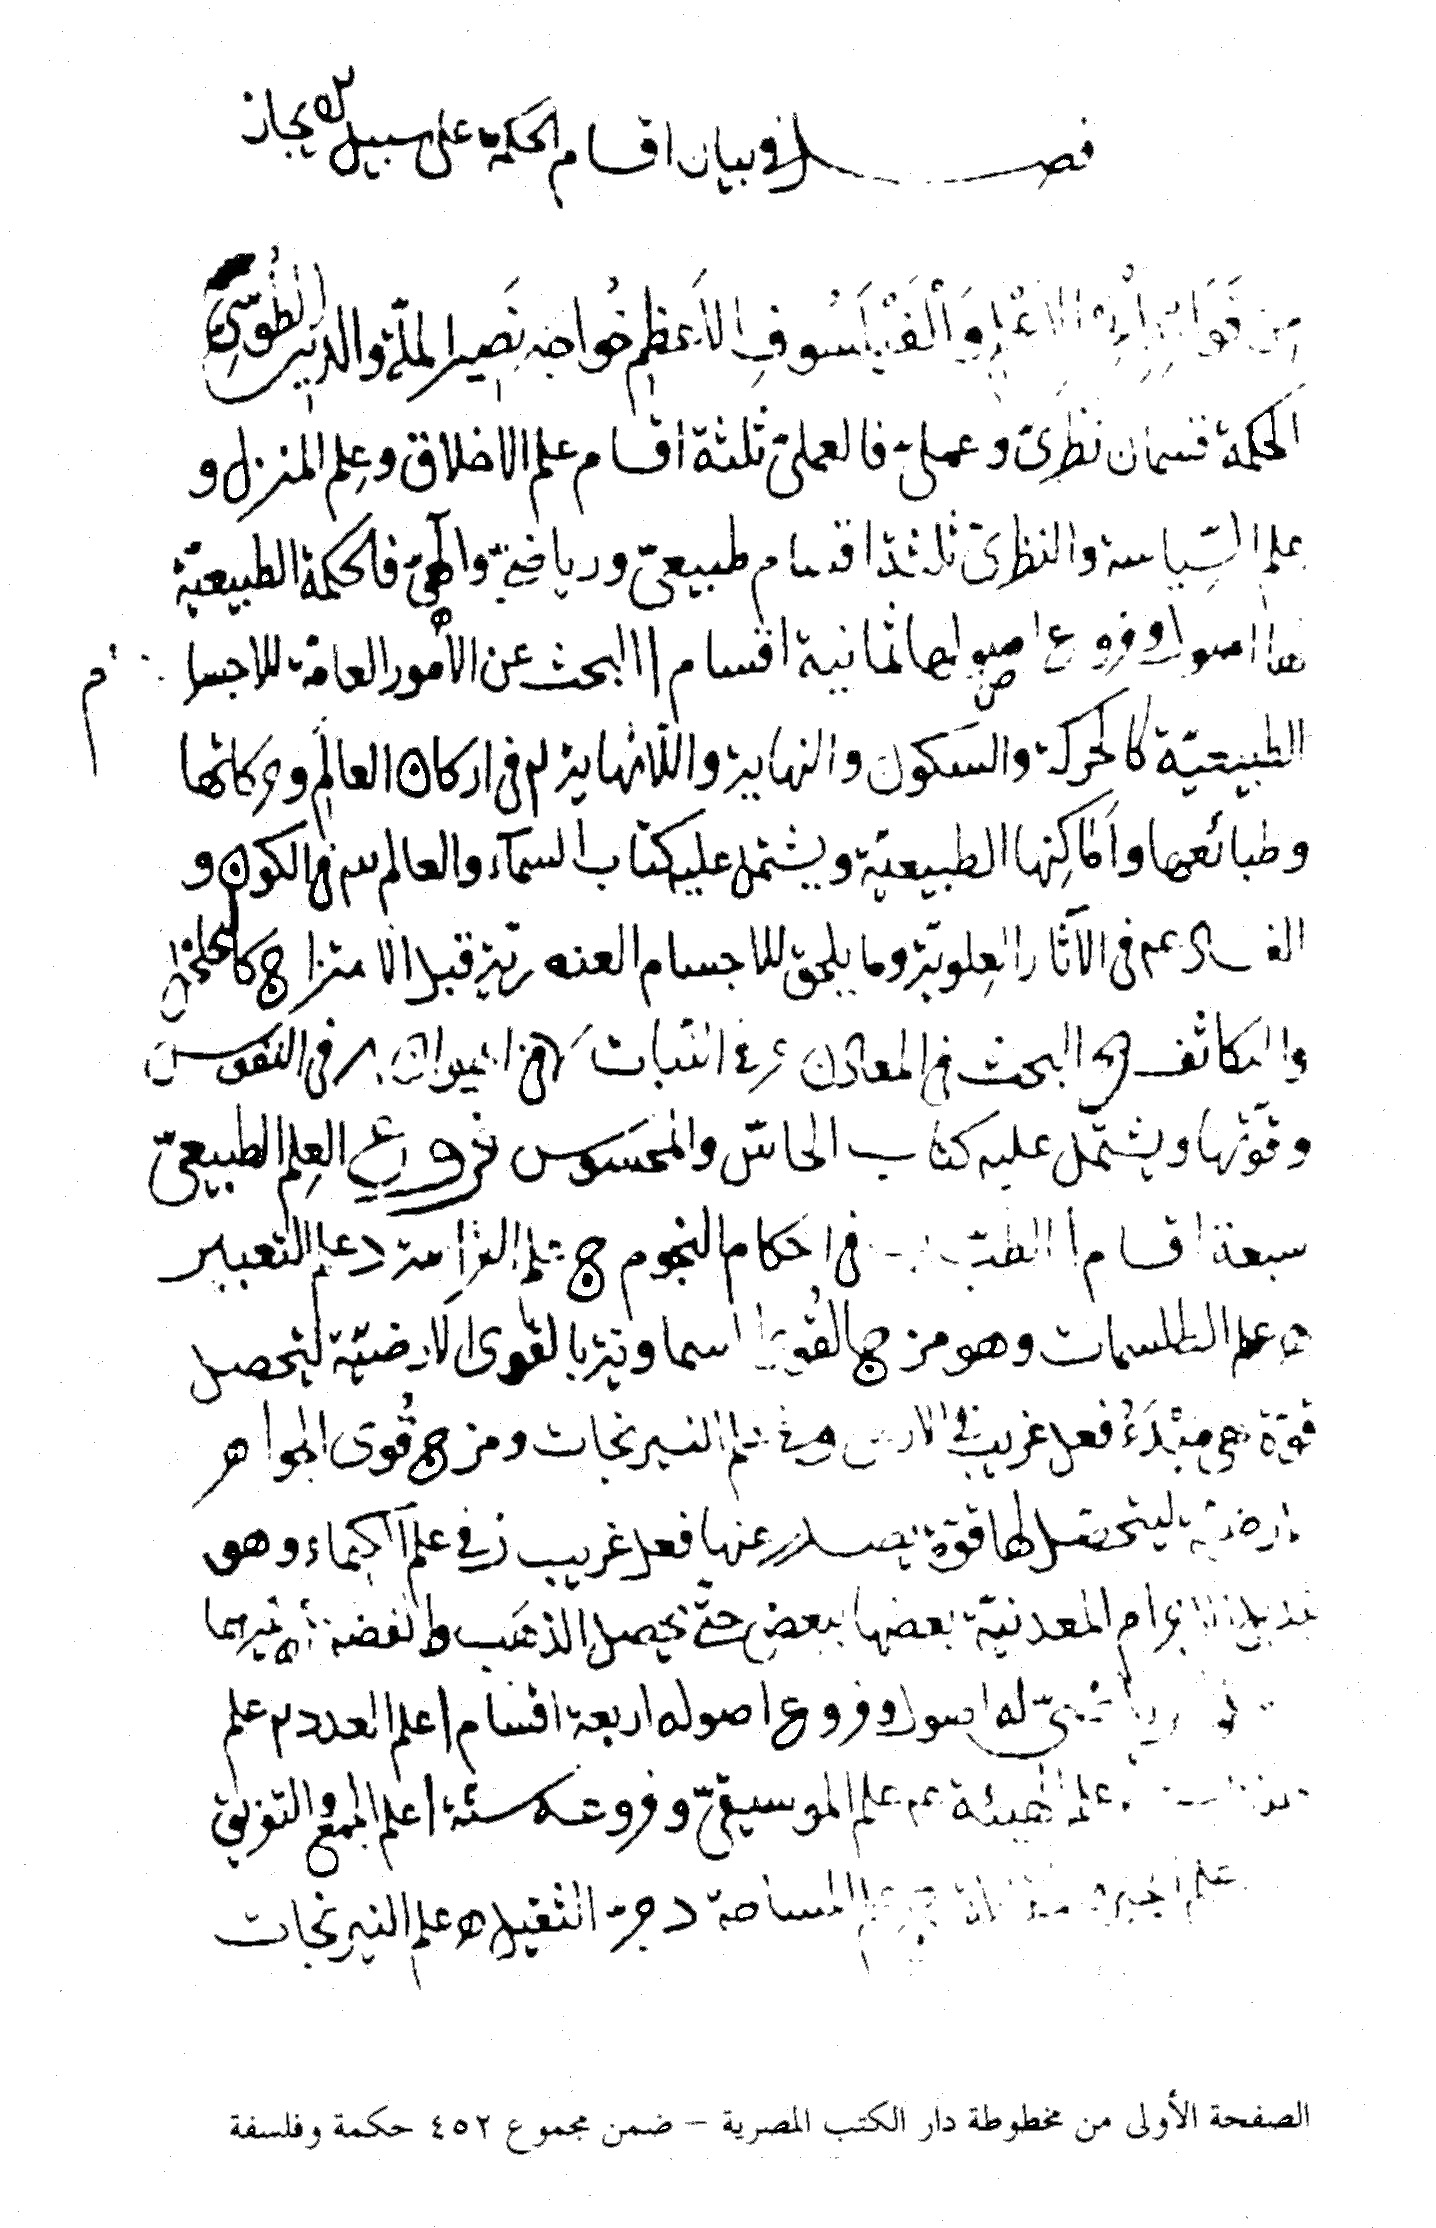 فصل في بيان اقسام الحكمة على سبيل الايجاز
من فوائد والفيلسوف الاعظم خواجه نصير الملة والدين الطوسي
الحكمة قسمان نظرىّ و عملىّ فالعملىّ ثلثة اقسام علم الاخلاق وعلم المنزل و
علم السّياسة والنظرىّ ثلثة اقسام طبيعىّ ورياضىّ والٓهىّ فالحكمة الطبيعيّة
لها اصول وفروع اصولها ثمانية اقسام ا البحث عن الأمور العامّة للاجسام
الطبيعيّة كالحركة والسكون والنهاية واللّانهاية ٢ في اركان العالم وحركاتها
وطبائعها واماكنها الطبيعيّة ويشتمل عليه كتاب السمآء والعالم ٣ في الكون و
الفساد ٤ في الآثار العلويّة وما يلحق للاجسام العنصريّة قبل الامتزاج كالتخلخل
والتكاثف البحث في المعادن في النبات في الحيوان في النفوس
وقوّتها ويشتمل عليه كتاب الحاسّ والمحسوس فروع العلم الطبيعىّ
سبعة اقسام ا الطبّ ب في احكام النجوم ج علم الفراسة د علم التعبير
ه علم الطلسمات وهو مزج القوى السماوية بالقوى الارضيّة ليحصل
قوّة هى مبدَءُ فعل غريب في الارض و في علم النيرنجات ومزج قُوى الجواهر
الارضيّة ليتحصل لها قوّة يصدر عنها فعل غريب ز في علم الكيمياء وهو
تبديل الاجرام المعدنيّة بعضها ببعض حتّى يحصل الذهب والفضة او غيرهما
رياضىّ له اصول وفروع اصوله اربعة اقسام ا علم العدد ٢ علم
علم الهيئة ٤ علم الموسيقىّ وفروعه ستّة ا علم الجمع والتفريق
علم الجبر و المقابلة ج علم المساحة د جرّ الثقيل ه علم النيرنجات
الصفحة الأولى من مخطوطة دار الكتب المصرية – ضمن مجموع ٤٥٢ حكمة وفلسفة